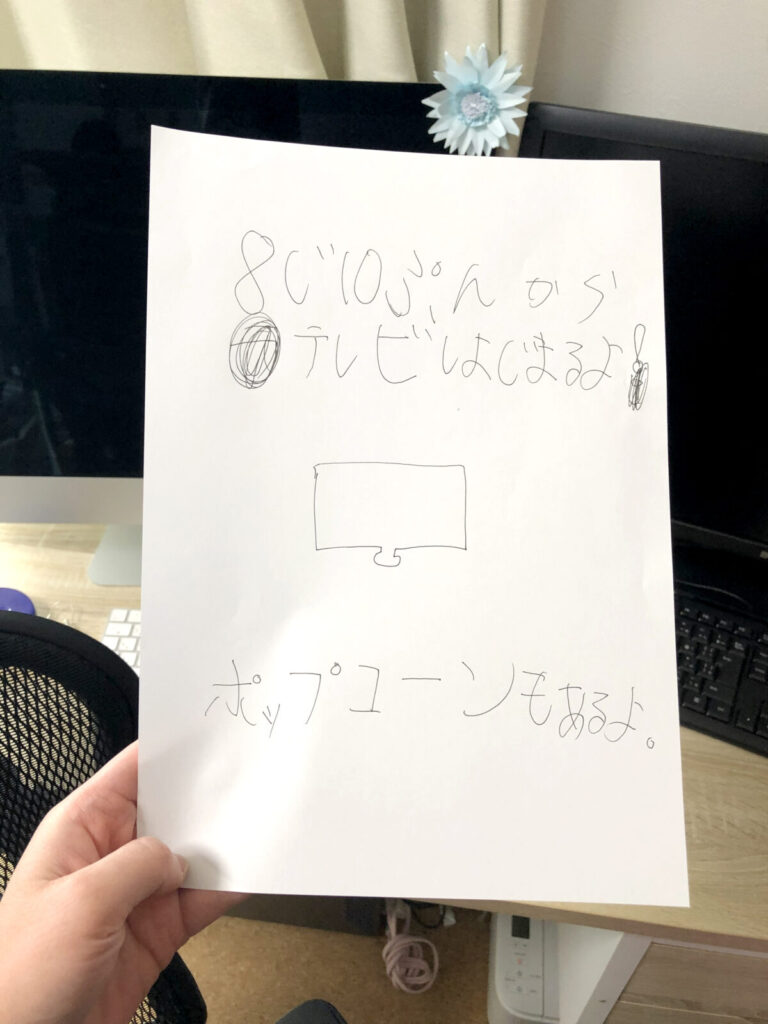 8じ10ぷんから
テレビはじまるよ!
ポップコーンもあるよ。